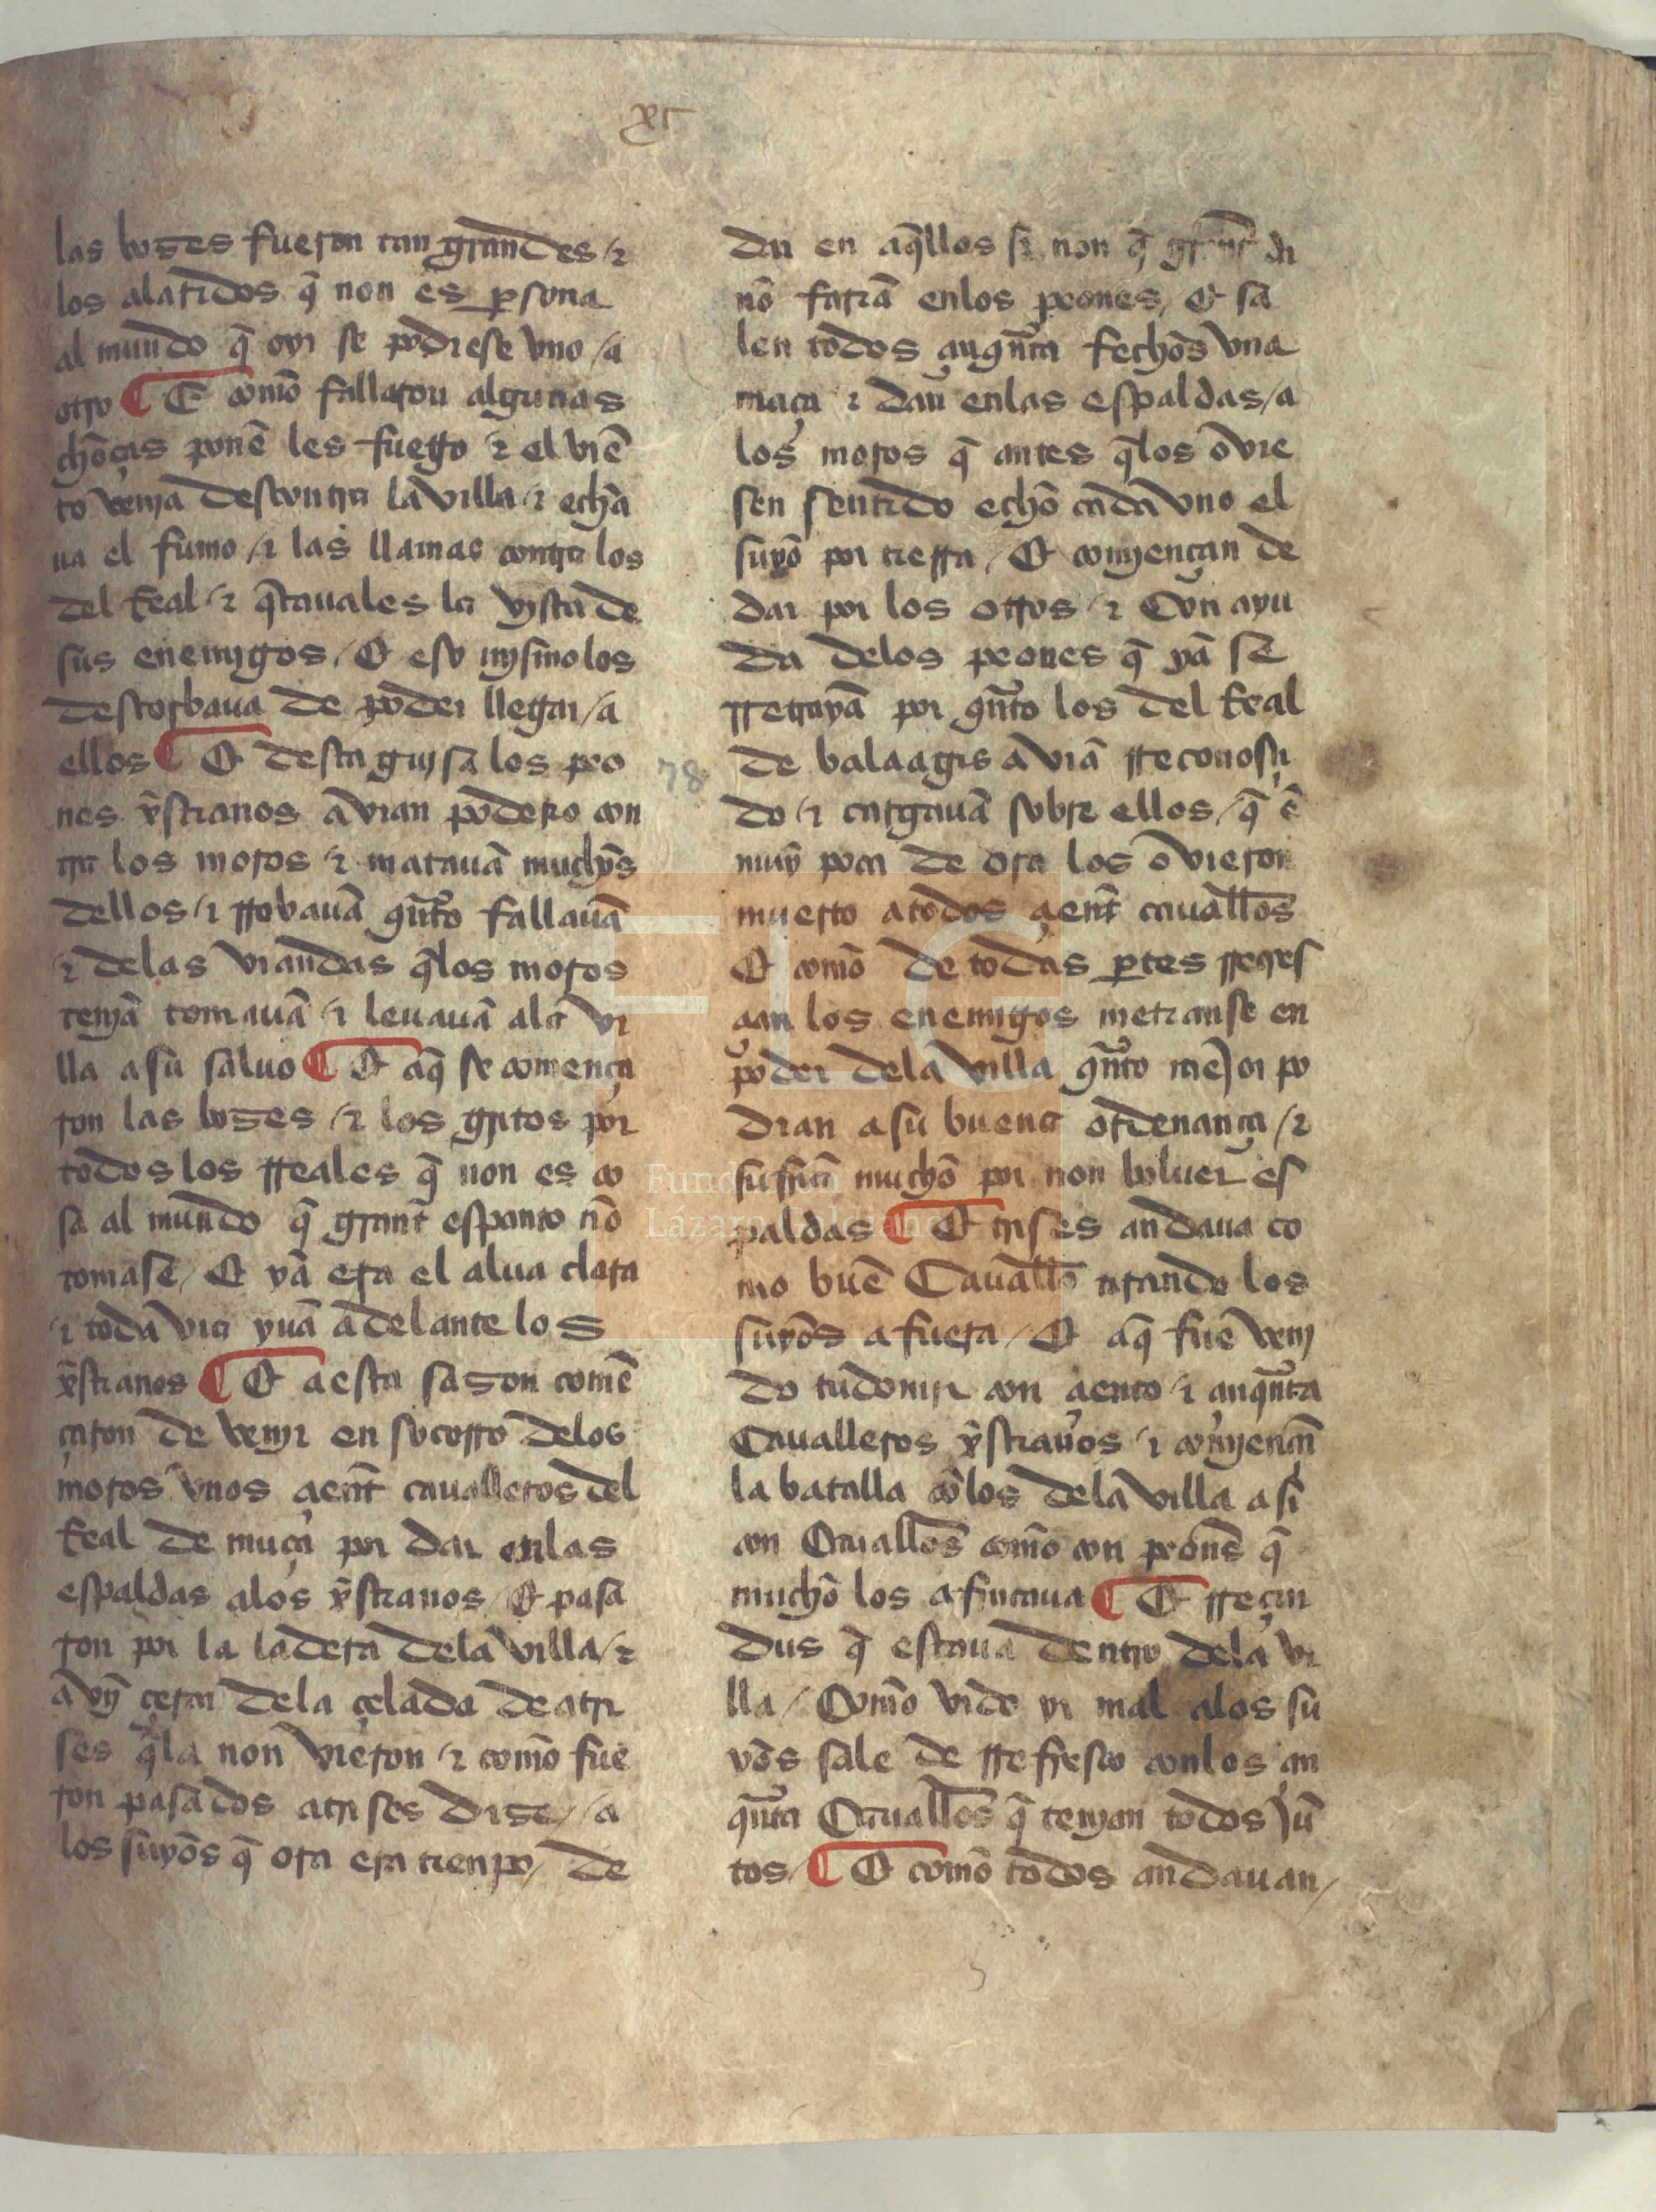 xc
las bozes fueron tan grandes / ⁊
los alaridos q̄ non es ꝑsona
al mundo q̄ oyr se podiese vno / a
otro ¶ E com̄o fallaron algunas
chōças ponē les fuego / ⁊ el viē
to venja descontra la villa / ⁊ echa
ua el fumo / ⁊ las llamas contra los
del Real / ⁊ q̄tauales la vista de
sus enemjgos / Et eso mjsmo los
destorbaua de poder llegar / a
ellos ¶ Et desta gujsa los peo
nes xp̄stianos avian podero con
tra los moros / ⁊ matauā muchos
dellos / ⁊ rrobauā qñto fallauā
/ ⁊ delas viandas q̄los moros
tenjā tomauā / ⁊ leuauā ala vi
lla a su saluo ¶ Et aq̄ se comença
ron las bozes / ⁊ los gritos por
todos los rreales q̄ non es co
sa al mundo q̄ grant̄ espanto nō
tomase / Et ya era el alua clara
/ ⁊ toda via yuā adelante los
xp̄stianos ¶ Et a esta sazon comē
çaron de venjr en socorro delos
moros vnos çient̄ caualleros del
Real de muça por dar enlas
espaldas alos xp̄stianos / Et pasa
ron por la ladera dela villa / ⁊
avn̄ çerca dela çelada de atri
ses q̄la non vieron / ⁊ com̄o fue
ron pasados atrises dize / a
los suyos q̄ ora era tienpo / de
78
da en aq̄llos si non q̄ grant̄
nō fariā enlos peones / Et sa
len todos çinqñta fechos vna
maça ⁊ dan enlas espaldas / a
los moros q̄ antes q̄los ovie
sen sentido echo cada vno el
suyo por tierra / Et comjençan de
dar por los otros / ⁊ Con ayu
da delos peones q̄ ya se
rretrayā por qñto los del Real
de balaagis aviā rreconosçi
do / ⁊ cargauā sobre ellos / q̄ ē
muy poca de ora los ovieron
muerto a todos çient̄ cauall̄os
Et com̄o de todas ꝑtes rreçres
çian los enemigos metianse en
poder dela villa qñto mejor po
dian a su buena ordenança / ⁊
sufriā mucho por non boluer es
paldas ¶ Et atrises andaua co
mo buē Cauall̄o tirando los
suyos a fuera / Et aq̄ fue venj
do tudomir con çiento / ⁊ çinqñta
Caualleros xp̄stianos / ⁊ comjençan
la batalla cōlos dela villa asi
con Cauall̄os com̄o con peon̄s q̄
mucho los afincaua ¶ Et rreçin
dus q̄ estaua dentro dela vi
lla / Com̄o vido yr mal alos su
yos sale de rrefresco conlos çin
qñta Cauall̄os q̄ tenjan todos jū
tos / ¶ Et com̄o todos andauan /
FLG
Fundación
Lázaro Galdiano